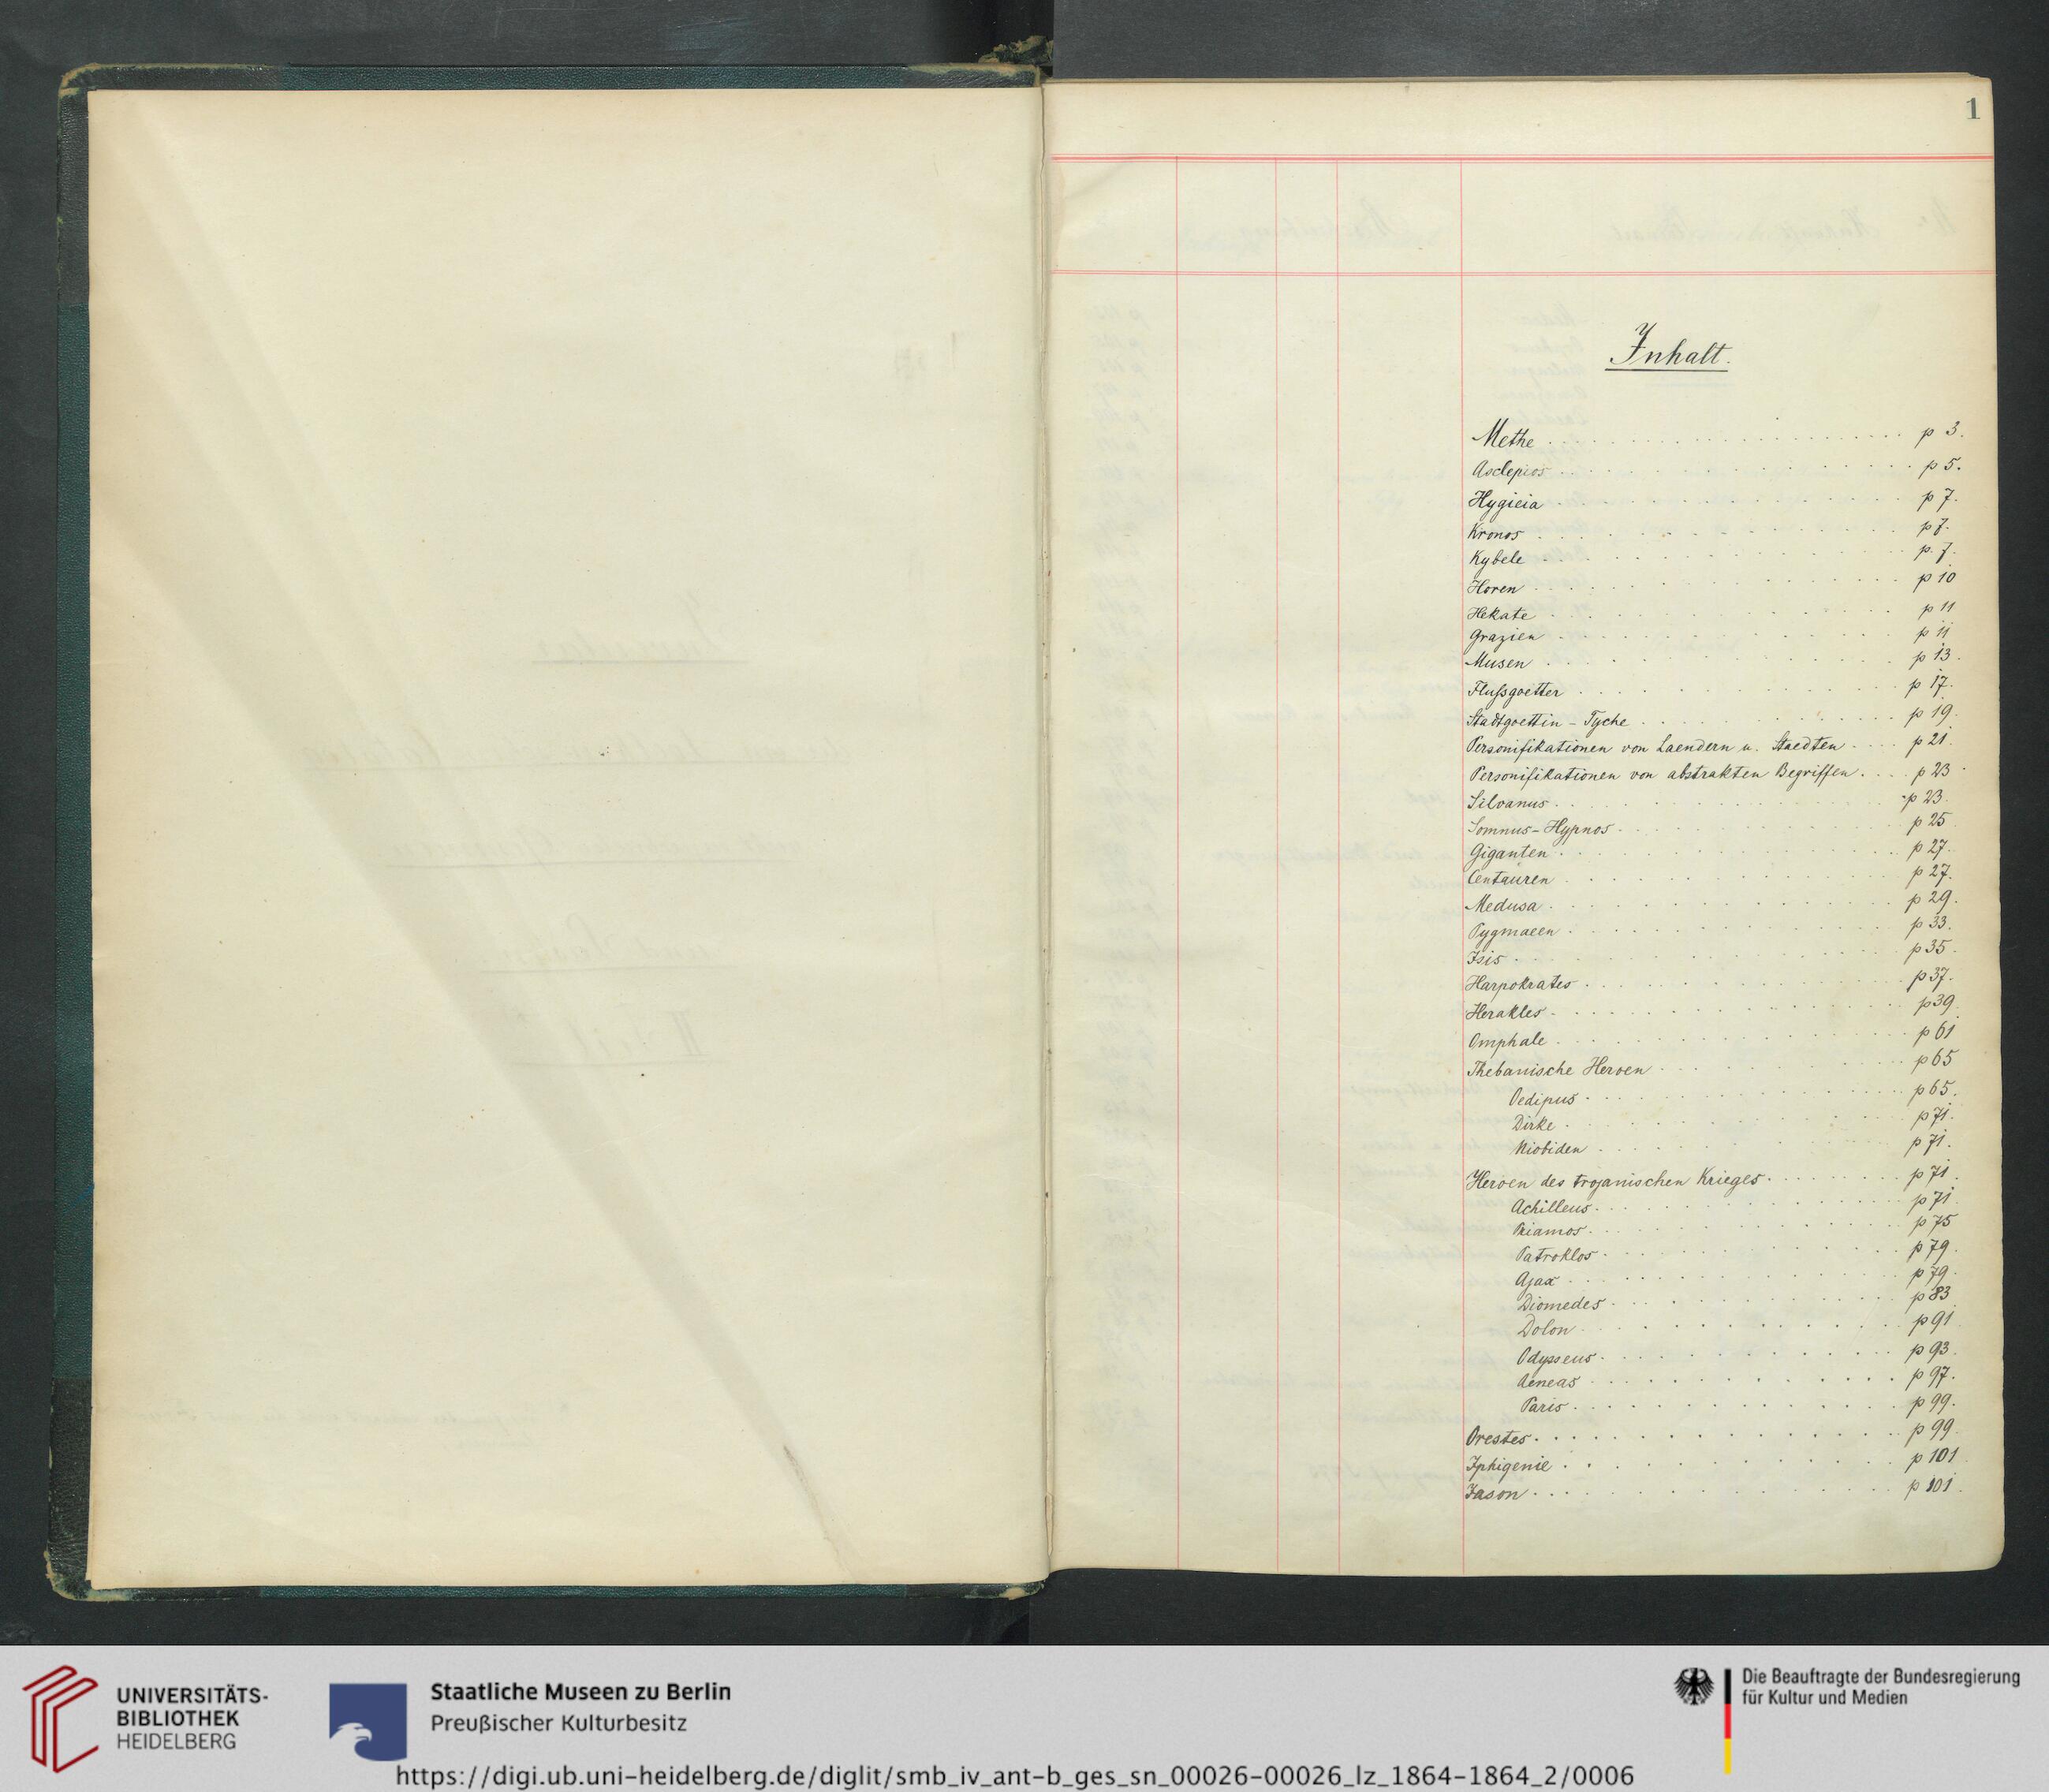 1
Inhalt.
Methe . . . . . p 3.
Asclepios . . . . . p 5.
Hygieia . . . . . p 7.
Kronos . . . . . p 7.
Kybele . . . . . p. 7.
Horen . . . . . p 10
Hekate . . . . . p 11
Grazien . . . . . p 11
Musen . . . . . p 13.
Flußgoetter . . . . . p 17.
Stadtgoettin - Tyche . . . . . p 19.
Personifikationen von Laendern u. Staedten . . . . p 21.
Personifikationen von abstrakten Begriffen . . . . p 23.
Silvanus . . . . . p 23.
Somnus-Hypnos . . . . . p 25
Giganten . . . . . p 27.
Centauren . . . . . p 27.
Medusa . . . . . p 29.
Pygmaeen . . . . . p 33.
Isis . . . . . p 35.
Harpokrates . . . . . p 37.
Herakles . . . . . p 39.
Omphale . . . . . p 61
Thebanische Heroen . . . . . p 65
Oedipus . . . . . p 65.
Dirke . . . . . p 71.
Niobiden . . . . . p 71.
Heroen des trojanischen Krieges . . . . . p 71.
Achilleus . . . . . p 71.
Priamos . . . . . p 75
Patroklos . . . . . p 79.
Ajax . . . . . p 79.
Diomedes . . . . . p 83
Dolon . . . . . p 91
Odysseus . . . . . p 93.
Aeneas . . . . . p 97.
Paris . . . . . p 99.
Orestes . . . . . p 99.
Iphigenie . . . . . p 101.
Jason . . . . . p 101.
UNIVERSITÄTS-
BIBLIOTHEK
HEIDELBERG
Staatliche Museen zu Berlin
Preußischer Kulturbesitz
Die Beauftragte der Bundesregierung
für Kultur und Medien
https://digi.ub.uni-heidelberg.de/diglit/smb_iv_ant-b_ges_sn_00026-00026_lz_1864-1864_2/0006